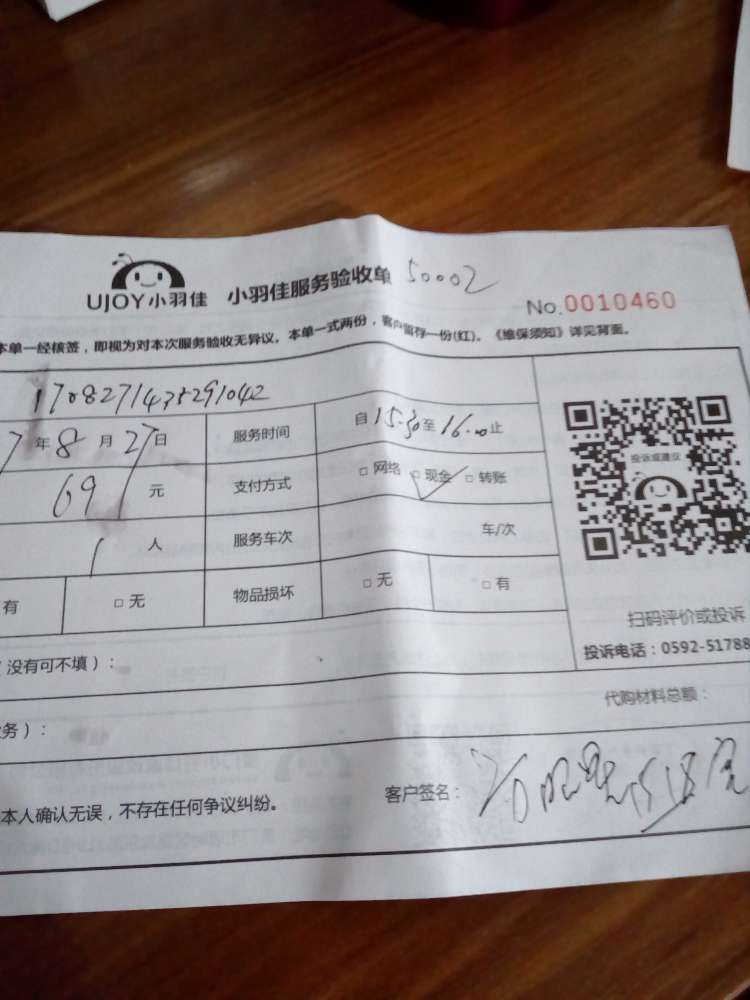 UJOY小羽佳 小羽佳服务验收单 50002
No.0010460
本单一经核签，即视为对本次服务验收无异议。本单一式两份，客户留存一份(红)。《维保须知》详见背面。
1708271435291042
7年8月27日 服务时间 自15:30至16:00止
69元 支付方式 □网络 □现金 □转账
投诉或建议
1人 服务车次 车/次
有 □无 物品损坏 □无 □有
扫码评价或投诉
投诉电话：0592-51788
（没有可不填）：
代购材料总额：
务）：
本人确认无误，不存在任何争议纠纷。 客户签名：